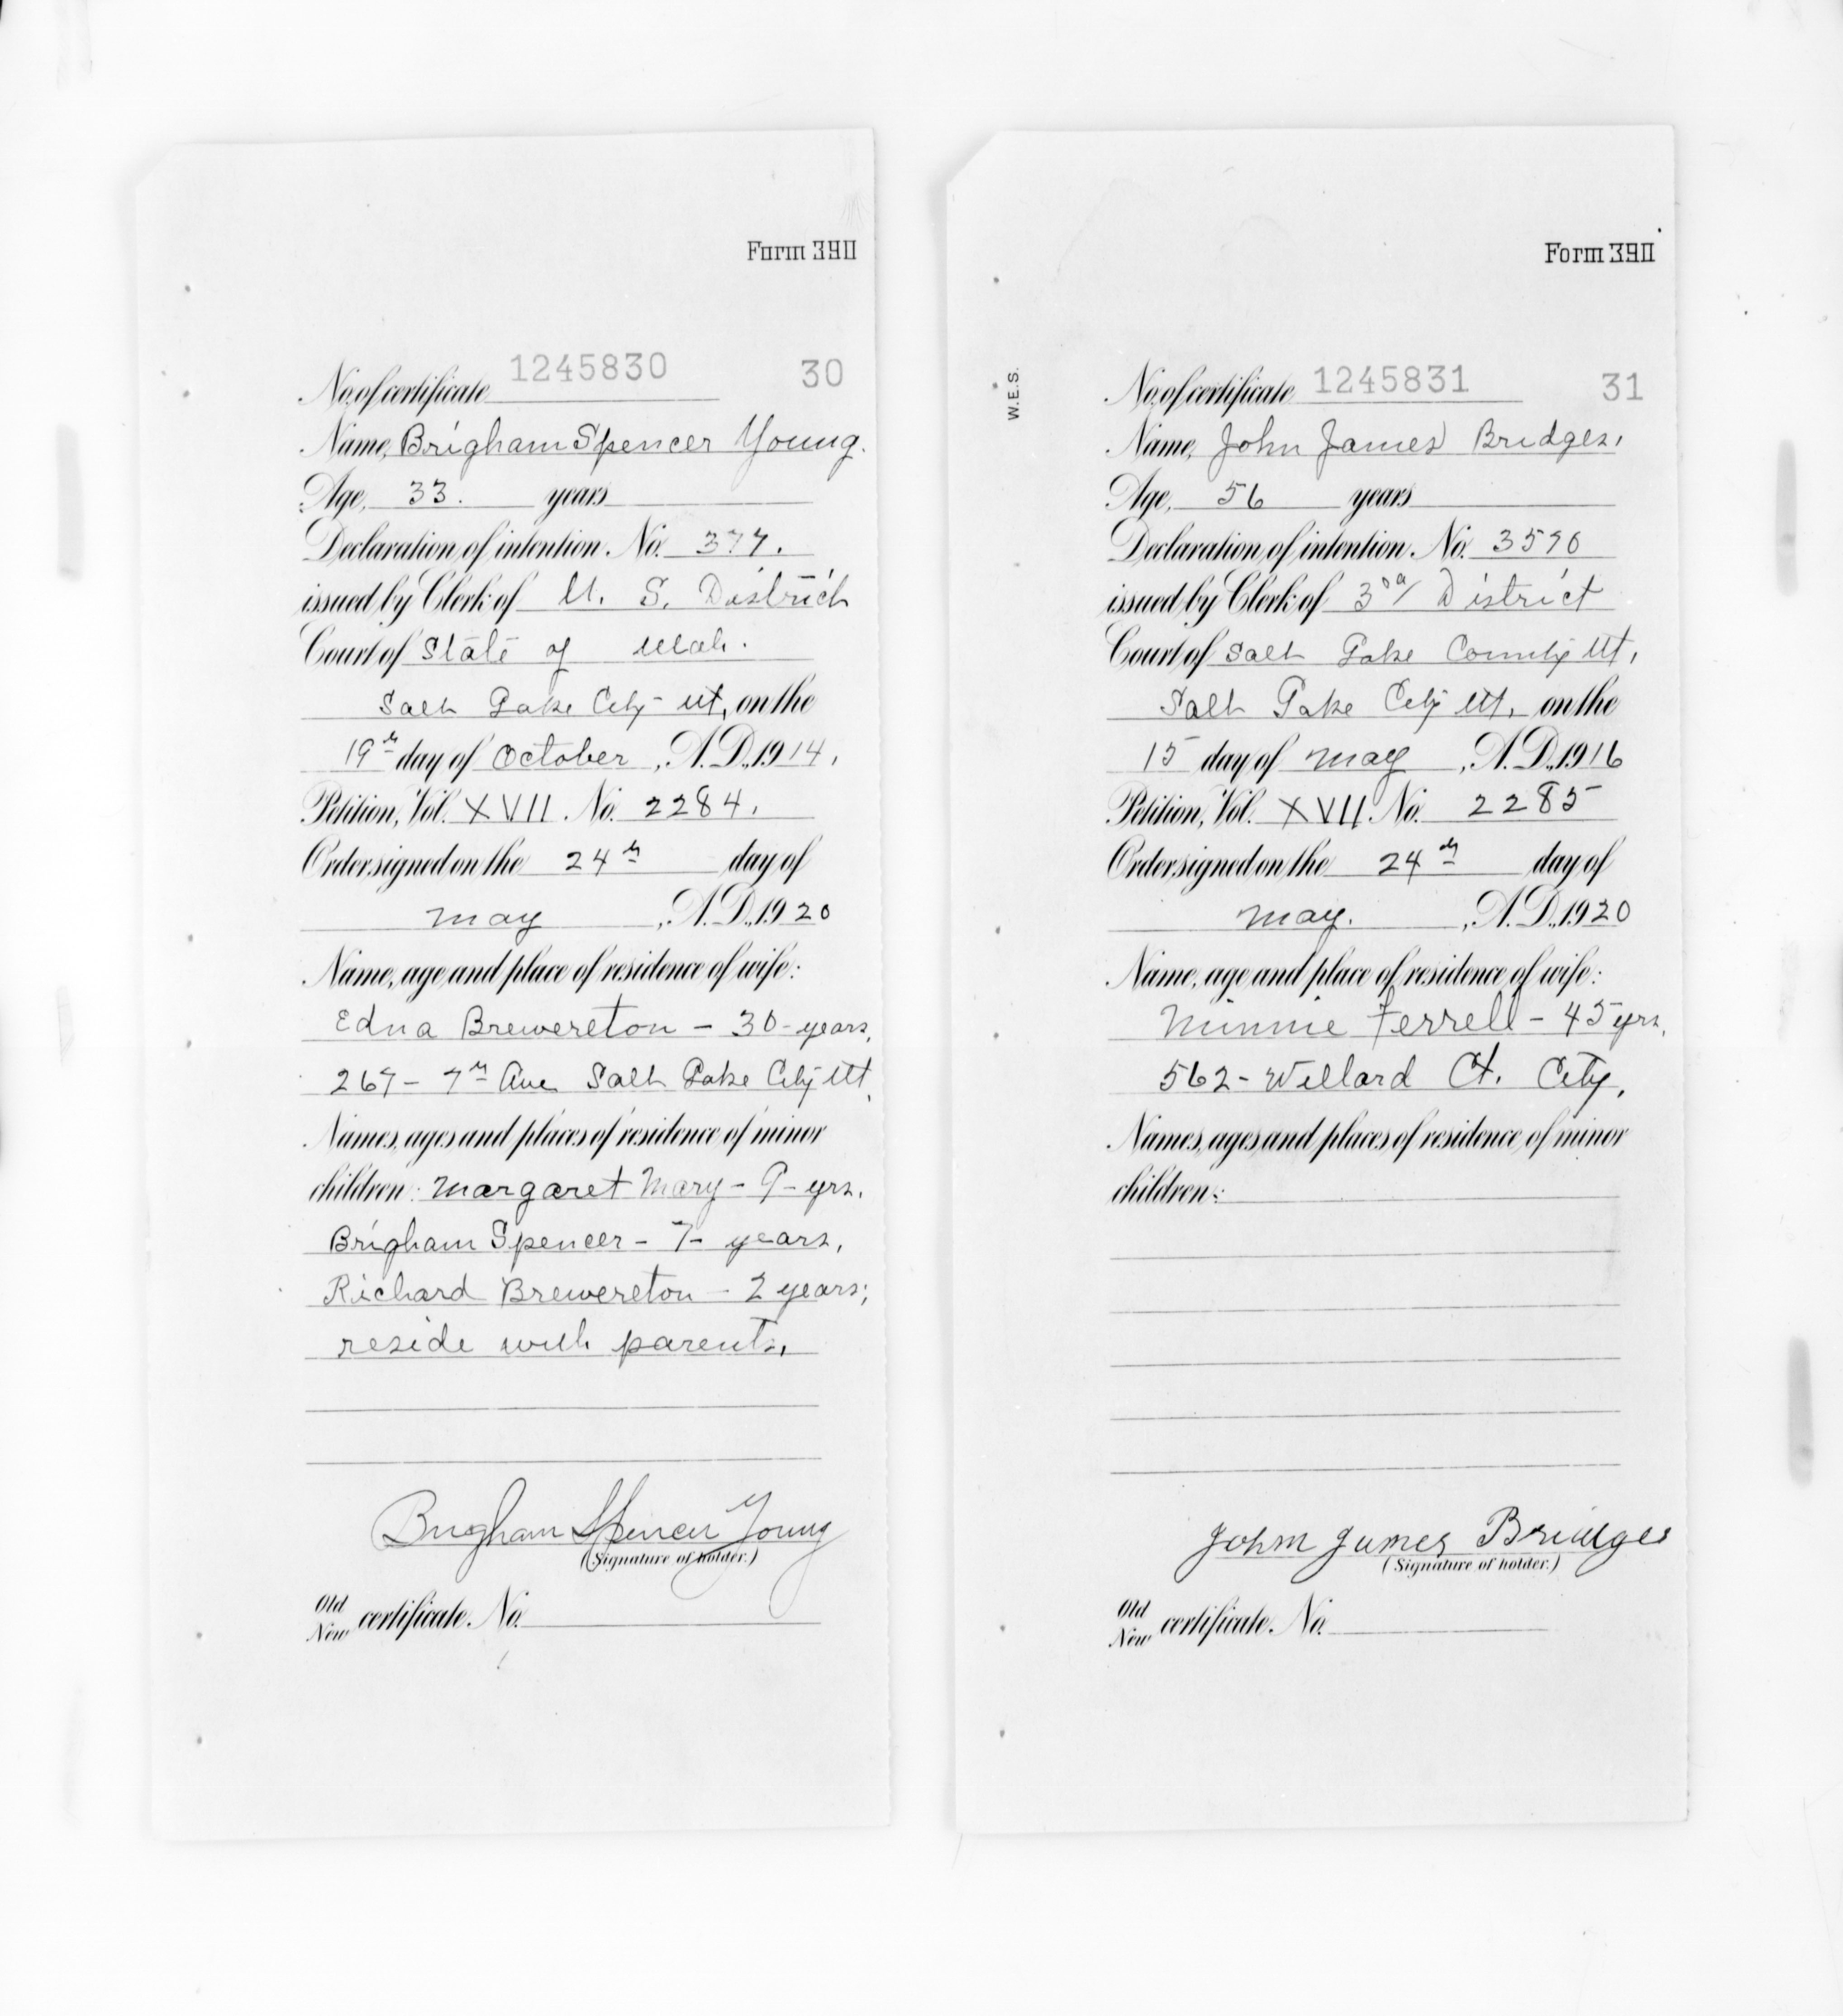 Form 390
No. of certificate 1245830 30
Name, Brigham Spencer Young.
Age, 33. years
Declaration of intention. No. 377.
issued by Clerk of U. S. District
Court of State of Utah.
Salt Lake City Ut, on the
19th day of October, A.D. 1914,
Petition, Vol. XVII. No. 2284.
Order signed on the 24th day of
May, A.D. 1920
Name, age and place of residence of wife:
Edna Brewereton - 30 - years,
267 - 7th Ave Salt Lake City Ut,
Names, ages and places of residence of minor
children: Margaret Mary - 9 - yrs.
Brigham Spencer - 7 - years,
Richard Brewereton - 2 years;
reside with parents,
Brigham Spencer Young
(Signature of holder.)
Old
New certificate. No.
Form 390
W.E.S.
No. of certificate 1245831 31
Name, John James Bridges,
Age, 56 years
Declaration of intention. No. 3570
issued by Clerk of 3rd District
Court of Salt Lake County Ut,
Salt Lake City Ut. on the
15 day of May, A.D. 1916
Petition, Vol. XVII. No. 2285
Order signed on the 24th day of
May. , A.D. 1920
Name, age and place of residence of wife:
Minnie Ferrell - 45 yrs,
562 - Willard Ct. City,
Names, ages and places of residence of minor
children:
John James Bridges
(Signature of holder.)
Old
New certificate. No.